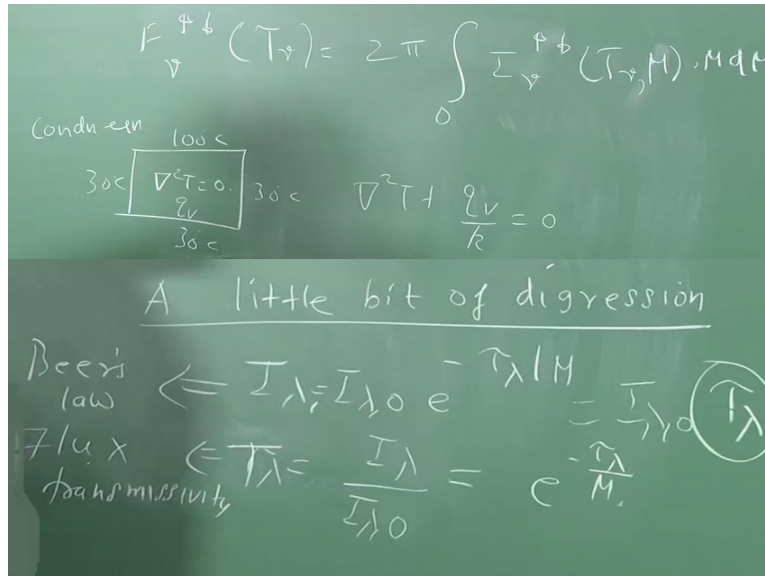 F_ν^{↑↓} (τ_ν) = 2π ∫_0 I_ν^{↑↓} (τ_ν, μ) . μ dμ
Conduction
100°C
30°C ∇²T=0. 30°C
q_v
30°C
∇²T + q_v/k = 0
A little bit of digression
Beer's law ⇐ I_λ = I_λ,0 e^{-τ_λ/μ} = I_λ,0 T_λ
Flux transmissivity ⇐ T_λ = I_λ/I_λ0 = e^{-τ_λ/μ}.